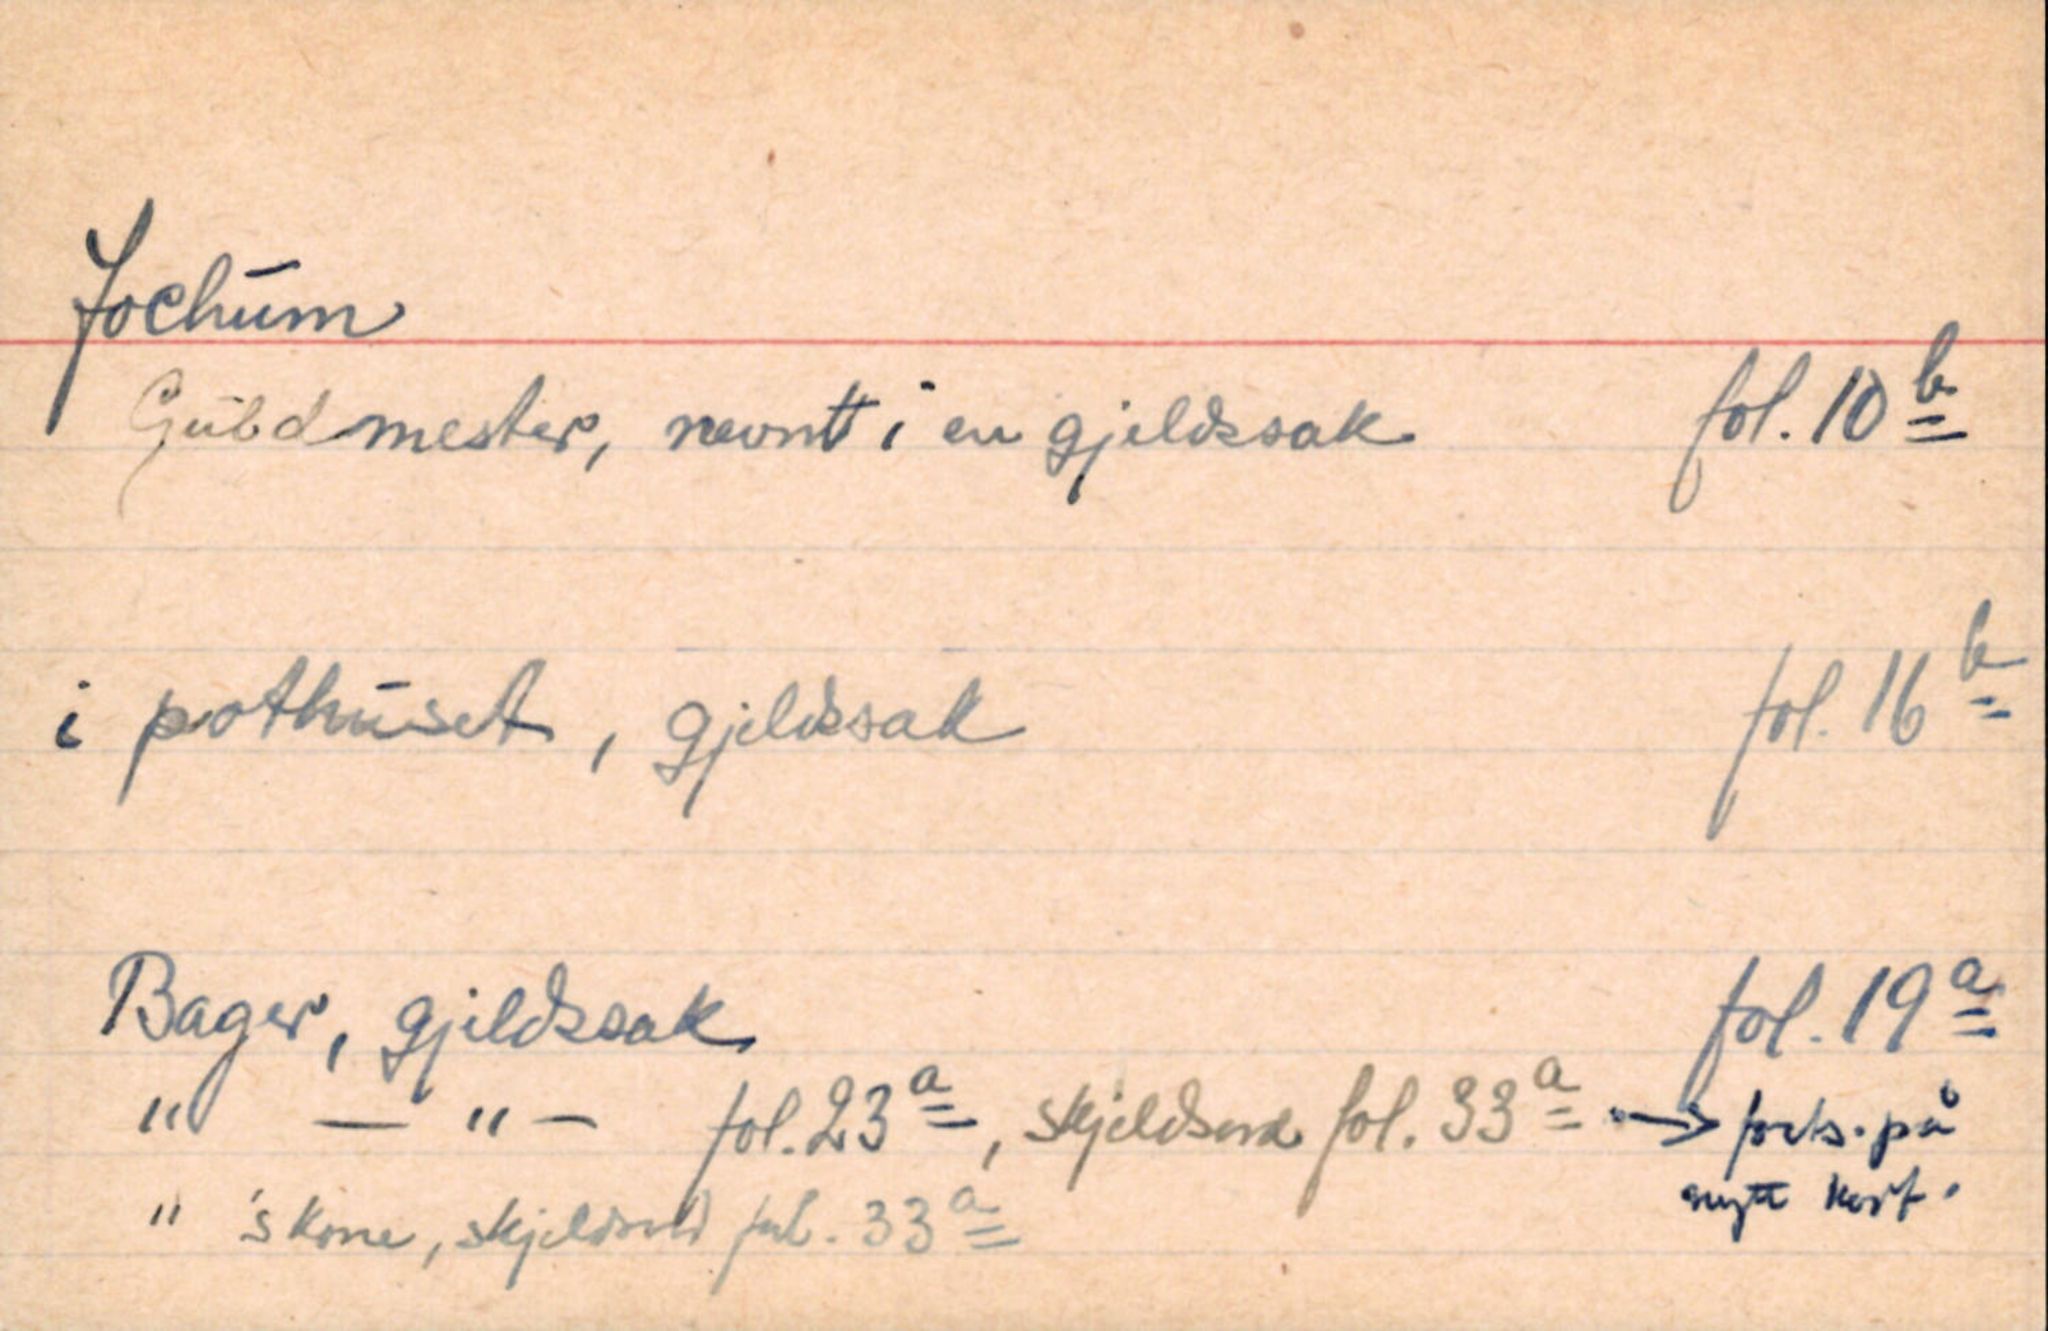 Jochūm
Gūldmester, nevnt i en gjeldssak fol. 10 b
i pothūset, gjeldssak fol. 16 b
Bager, gjeldssak fol. 19 a
" — " — fol. 23 a, skjeldsord fol. 33 a → forts. på
nytt kort.
" 's kone, skjeldsord fol. 33 a